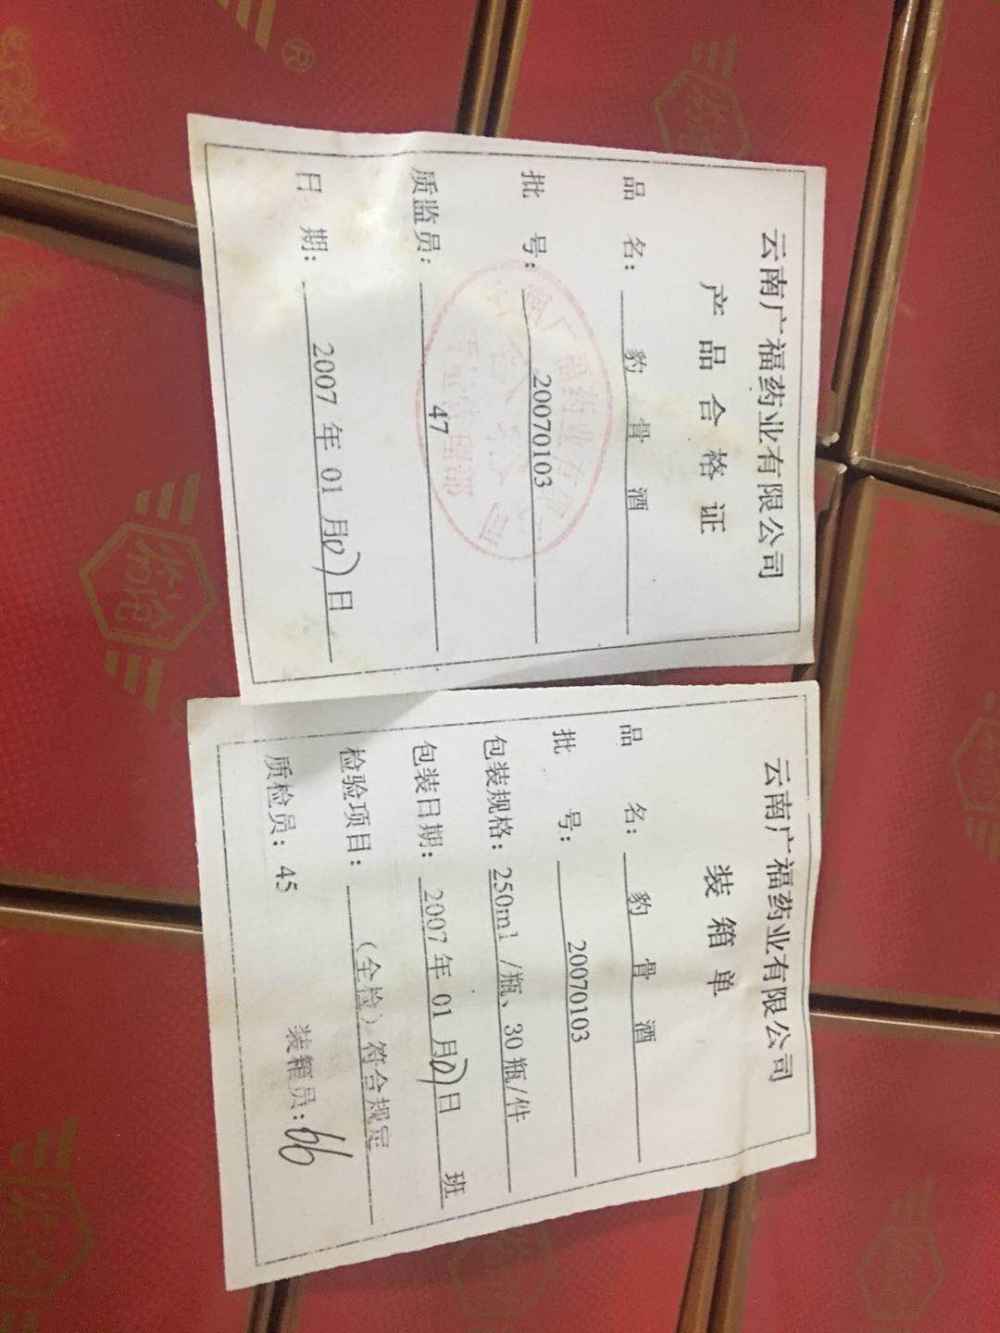 云南广福药业有限公司
产品合格证
品 名: 豹骨酒
批 号: 20070103
质监员: 47
日 期: 2007年01月 日
云南广福药业有限公司
装箱单
品 名: 豹骨酒
批 号: 20070103
包装规格: 250ml/瓶、30瓶/件
包装日期: 2007年01月 日 班
检验项目: (全检)符合规定
质检员: 45 装箱员: 66
®